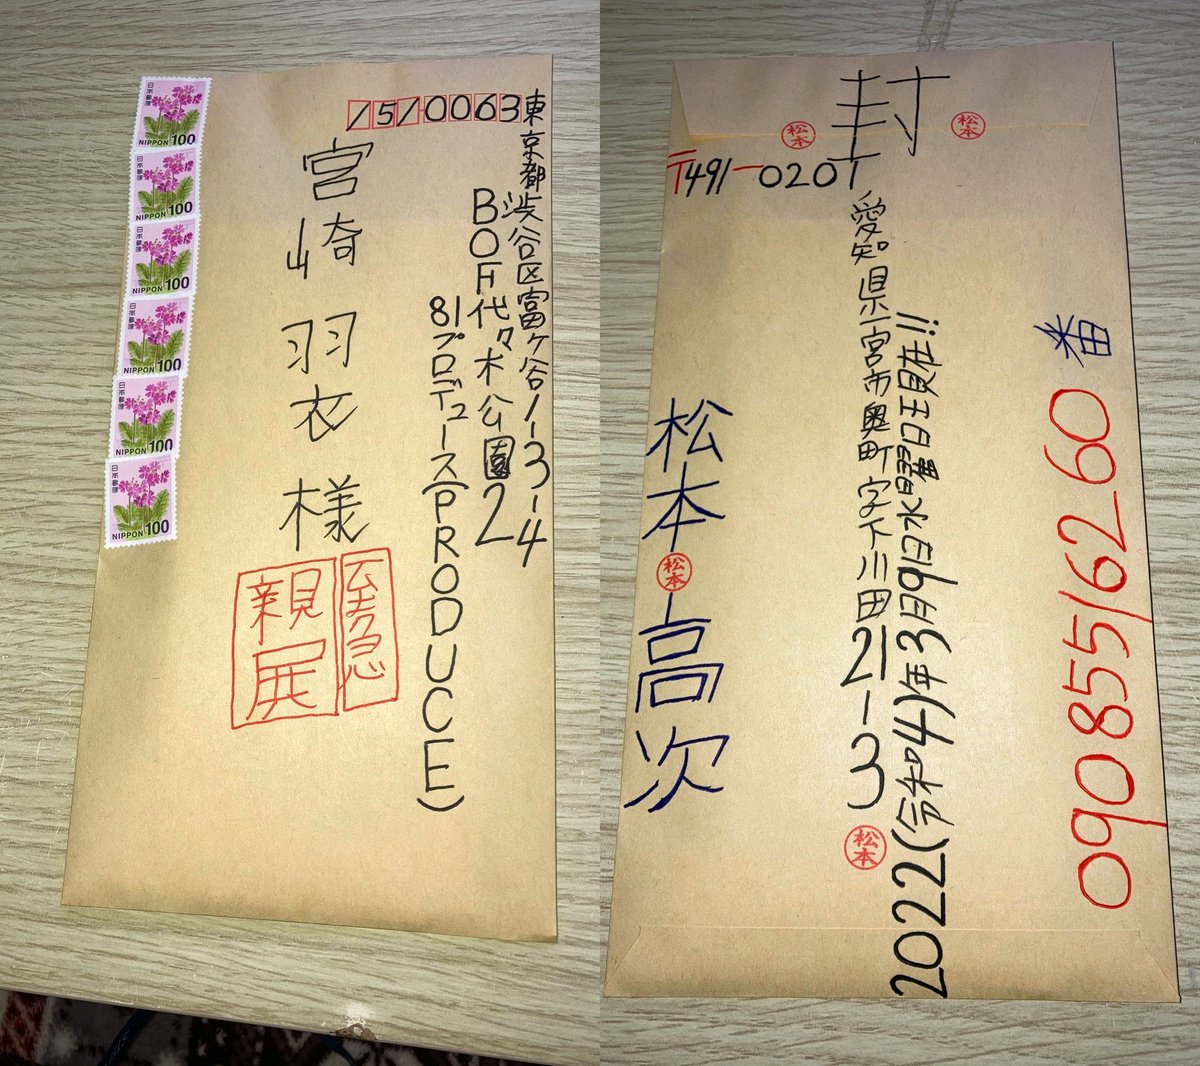 日本郵便
NIPPON 100
日本郵便
NIPPON 100
日本郵便
NIPPON 100
日本郵便
NIPPON 100
日本郵便
NIPPON 100
日本郵便
NIPPON 100
1510063
東京都渋谷区富ヶ谷1-3-4
BOF代々木公園2
81プロデュース(PRODUCE)
宮崎羽衣様
至急
親展
封
松本
松本
〒491-0201
09085516260番
2022(令和4)年3月9日水曜日現在!!
愛知県一宮市奥町字下川田21-3
松本
松本高次
松本